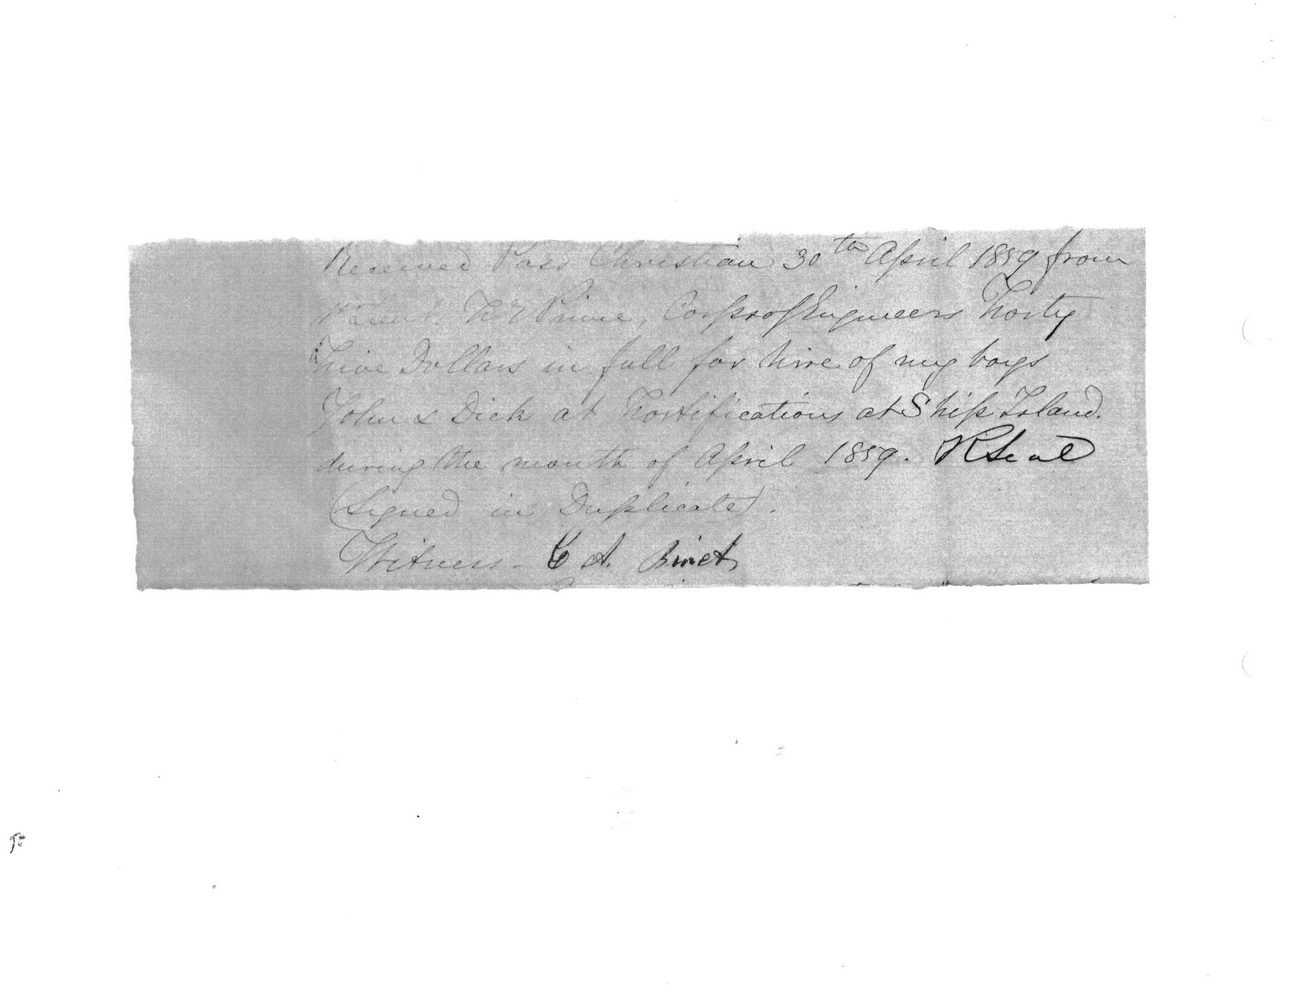 Received Pass Christian 30th April 1859 from
Lieut. F. E. Prime, Corps of Engineers Forty
Five Dollars in full for hire of my boys
John & Dick at Fortifications at Ship Island.
during the month of April 1859. R Seal
(Signed in Duplicate).
Witness - C A. Binet